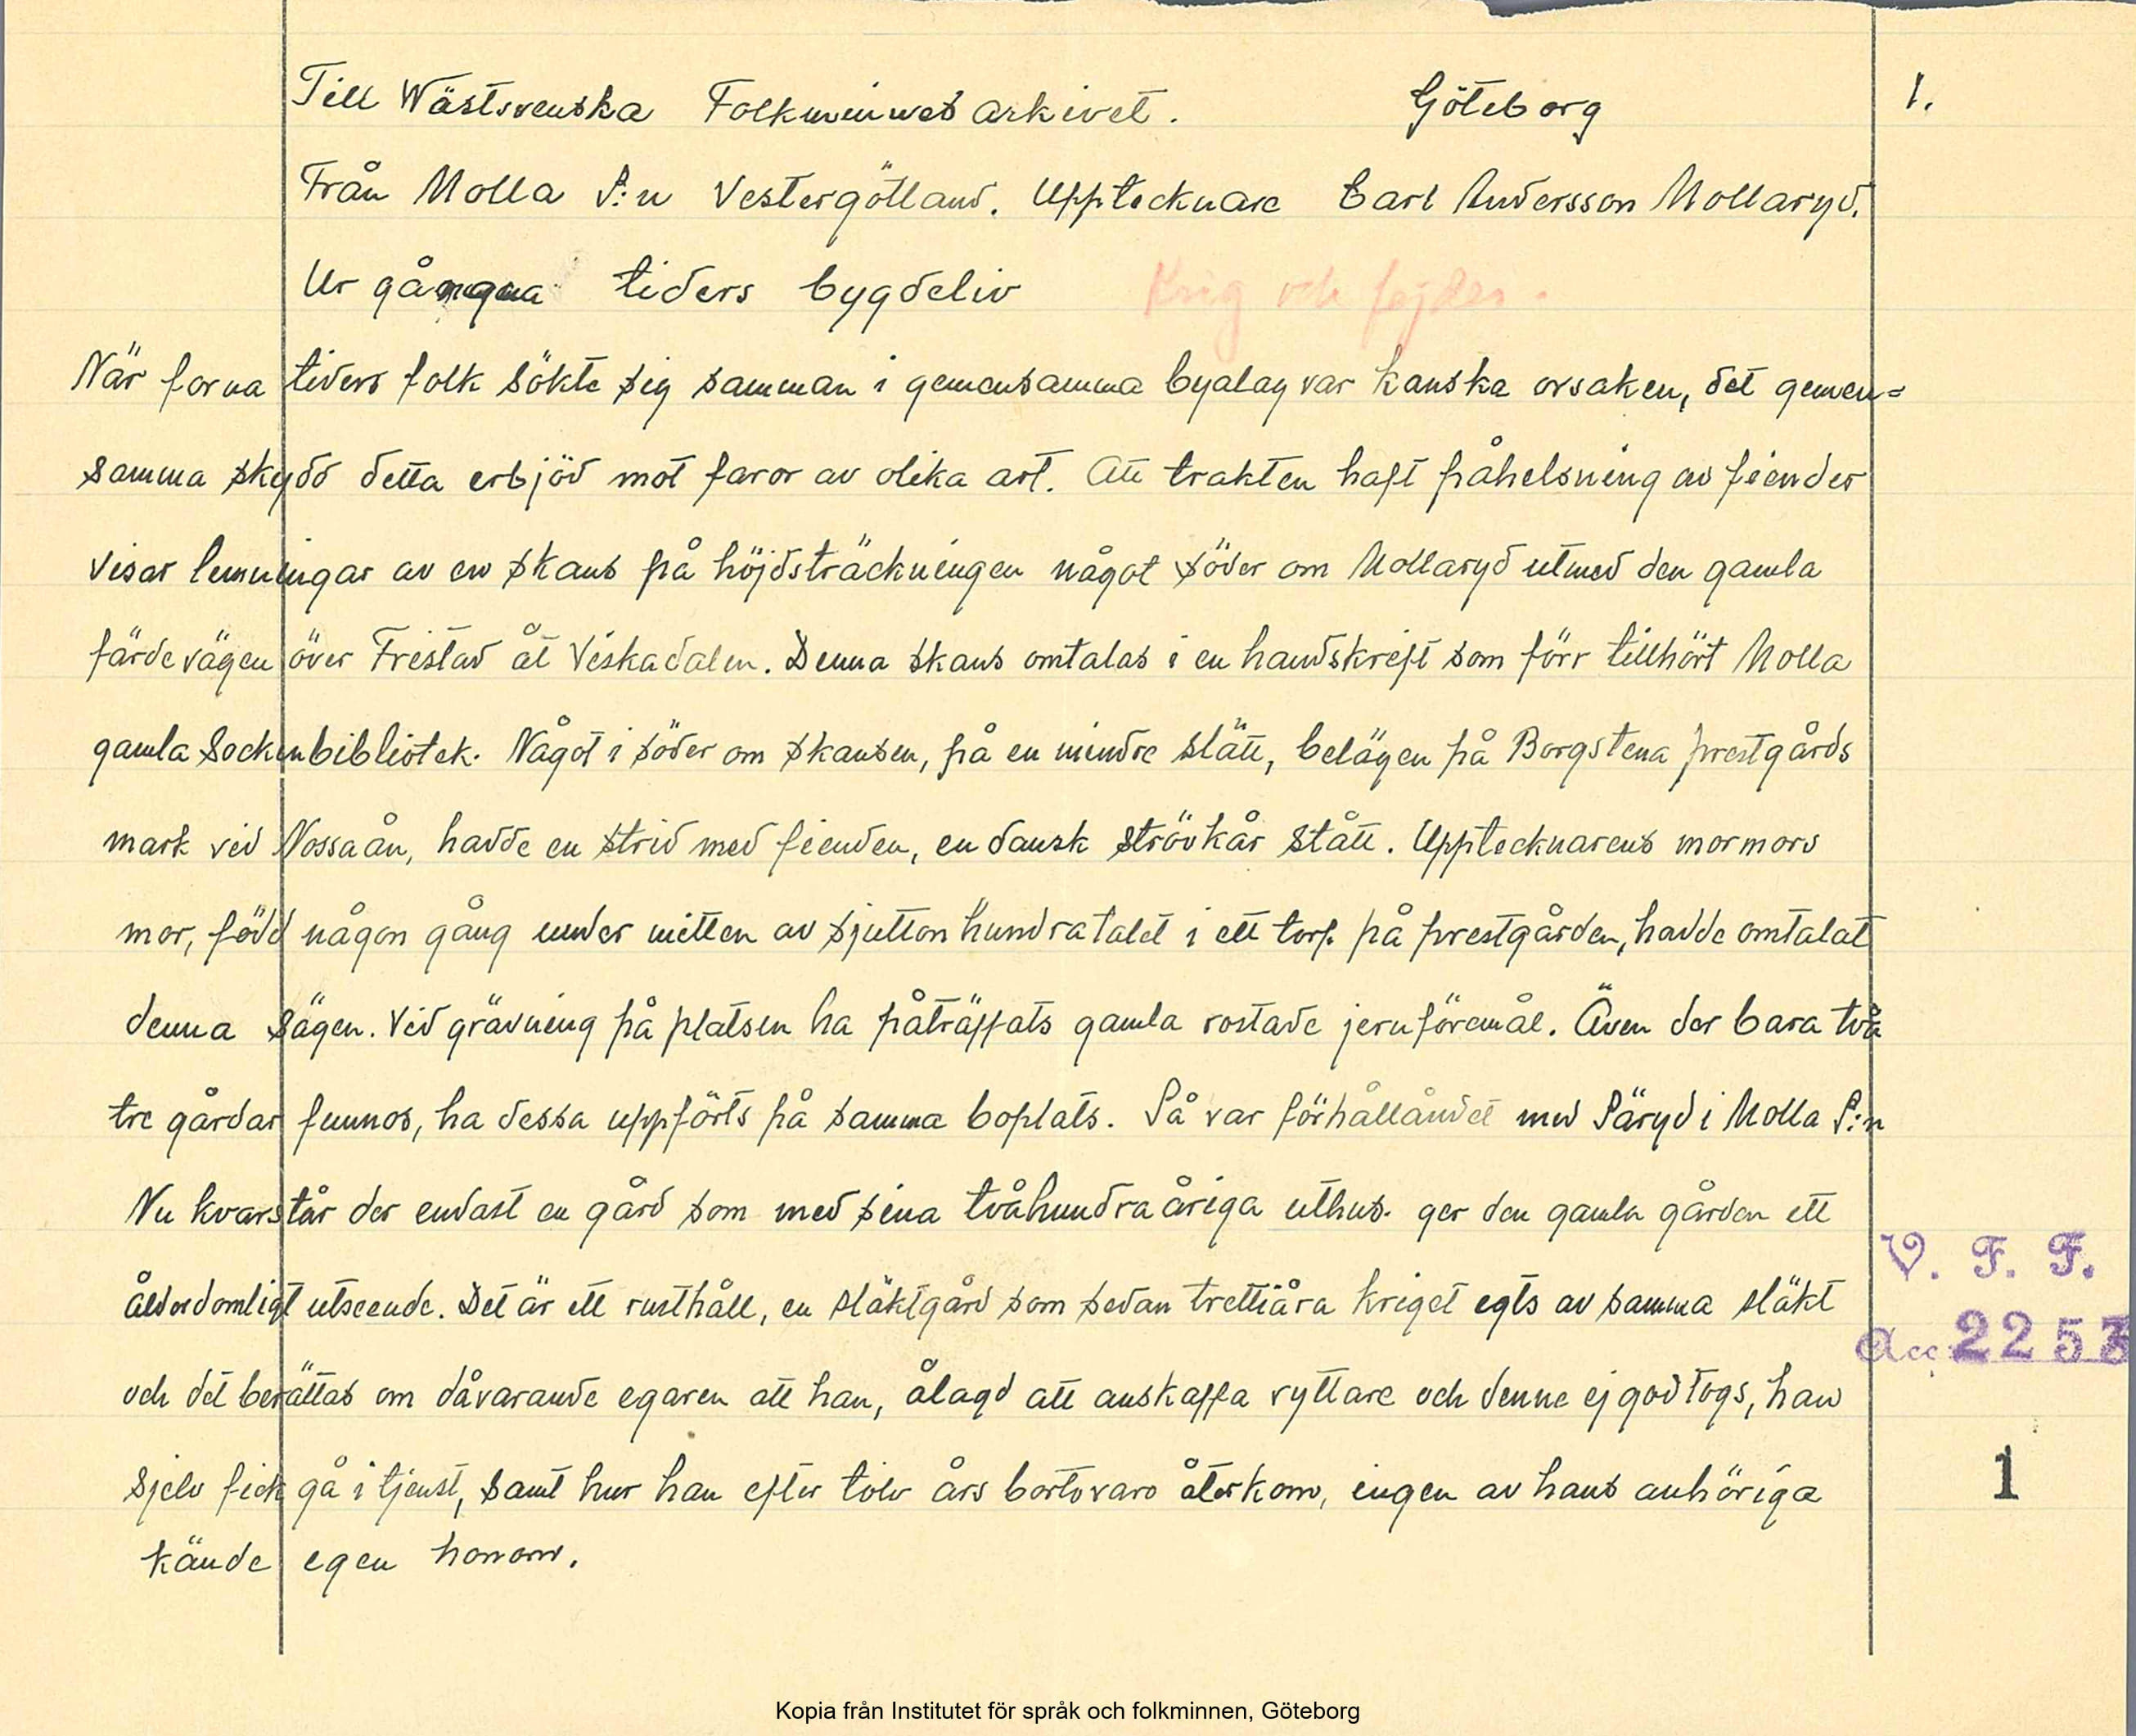 Till Wästsvenska Folkminnes arkivet. Göteborg 1.
Från Molla S:n Vestergötland. Upptecknare Carl Andersson Mollaryd.
Ur gångna tiders bygdeliv Krig och fejder.
När forna tiders folk sökte sig samman i gemensamma byalag var kanska orsaken, det gemen=
samma skydd detta erbjöd mot faror av olika art. Att trakten haft påhelsning av fiender
visar lemningar av en skans på höjdsträckningen något söder om Mollaryd utmed den gamla
färdevägen över Fristad åt Viskadalen. Denna skans omtalas i en handskrift som förr tillhört Molla
gamla Sockenbibliotek. Något i söder om skansen, på en mindre slätt, belägen på Borgstena prestgårds
mark vid Nossaån, hadde en strid med fienden, en dansk strövkår stått. Upptecknarens mormors
mor, född någon gång under mitten av sjutton hundratalet i ett torp på prestgården, hadde omtalat
denna sägen. Vid grävning på platsen ha påträffats gamla rostade jernföremål. Även der bara två
tre gårdar funnos, ha dessa uppförts på samma boplats. Så var förhållandet med Säryd i Molla S:n
Nu kvarstår der endast en gård som med sina tvåhundraåriga uthus. ger den gamla gården ett
ålderdomligt utseende. Det är ett rusthåll, en släktgård som sedan trettiåra kriget egts av samma släkt
och det berättas om dåvarande egaren att han, ålagd att anskaffa ryttare och denne ej godtogs, han
sjelv fick gå i tjenst, samt hur han efter tolv års bortovaro återkom, ingen av hans anhöriga
kände egen honom.
V. F. F.
Acc. 2253
1
Kopia från Institutet för språk och folkminnen, Göteborg